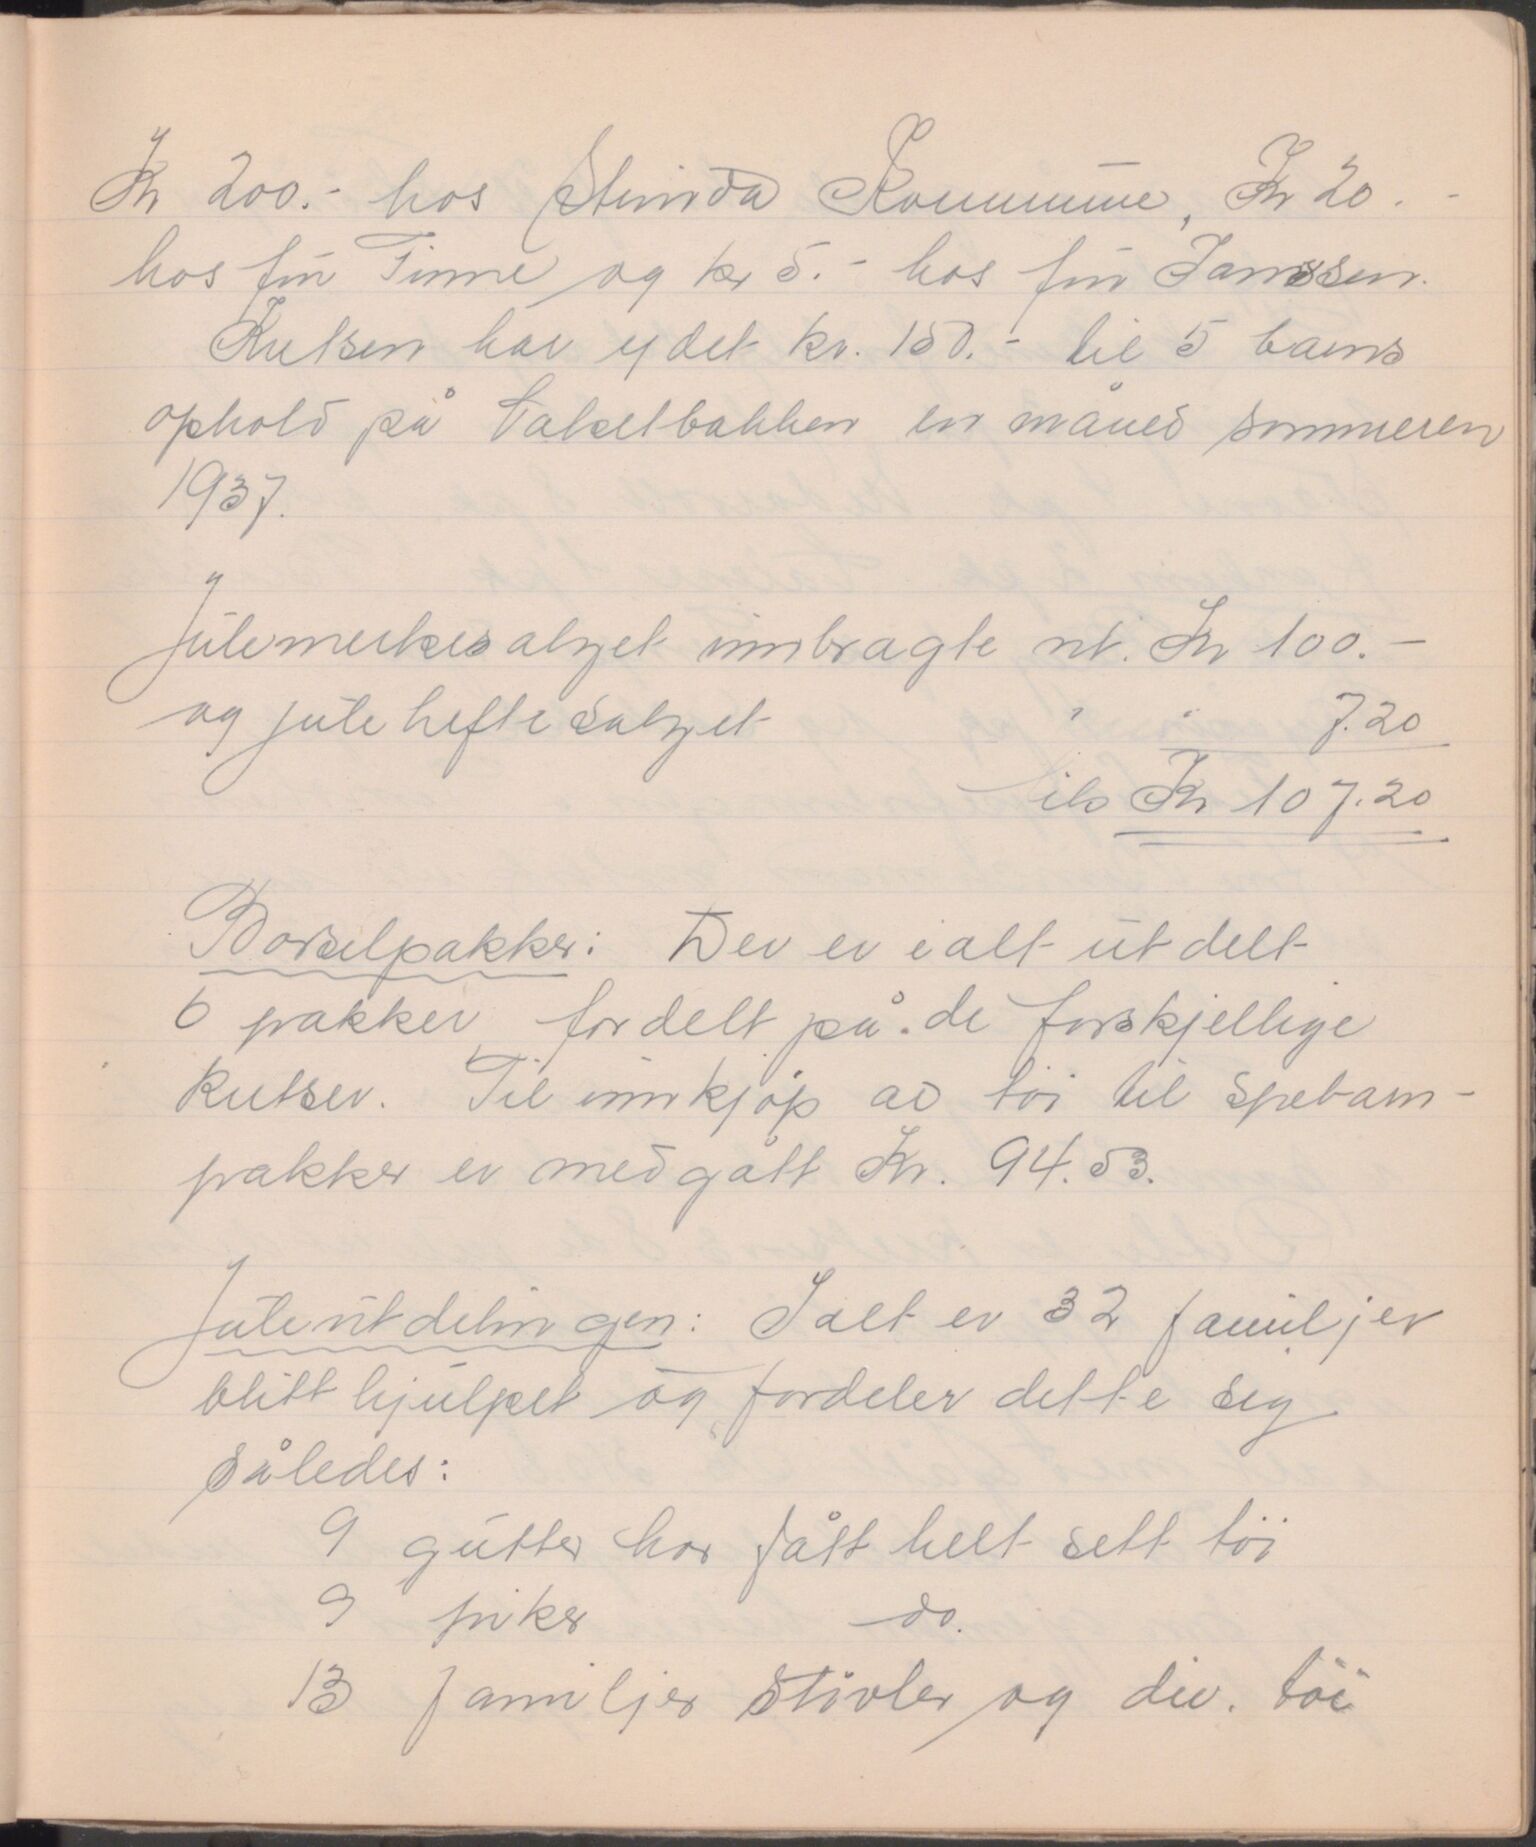 Kr 200.- hos Strinda Kommune, Kr 20.-
hos frú Finne og kr 5.- hos frú Janssen.
Kretsen har ydet kr. 150.- til 5 barns
ophold på Vakelbakken en måned sommeren
1937.
Julemerkesalget innbragte nt. Kr 100.-
og juleheftesalget " " 7.20
tils Kr 107.20
Barselpakker: Der er ialt utdelt
6 pakker, fordelt på de forskjellige
kretser. Til innkjøp av töi til spebarn-
pakker er medgått Kr. 94.53.
Juleutdelingen: Ialt er 32 familjer
blitt hjulpet og fordeler dette sig
således:
9 gutter har fått helt sett töi
9 piker do.
13 familjer stövler og div. töi